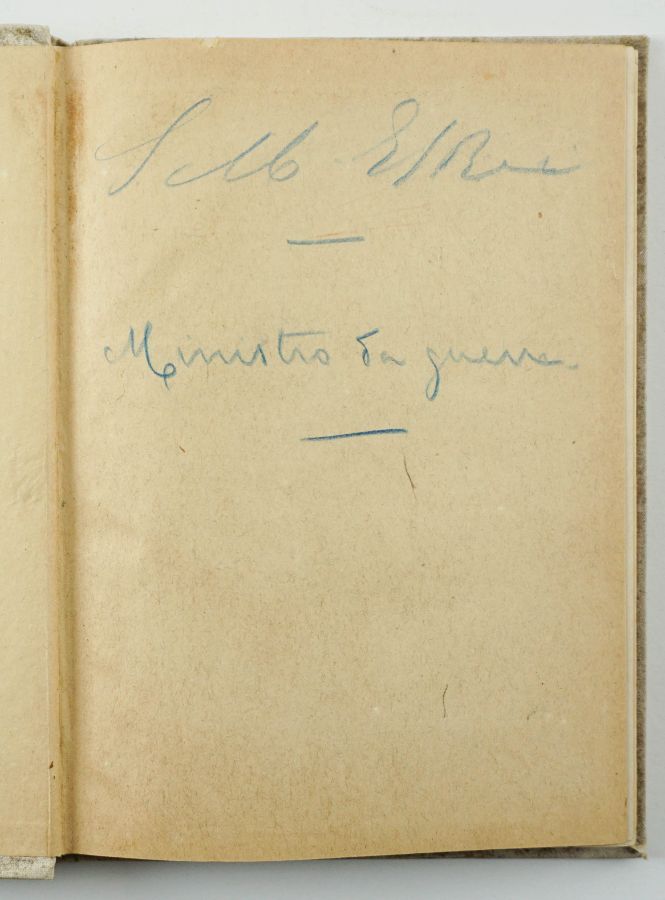 S M El Rei
Ministro da guerra